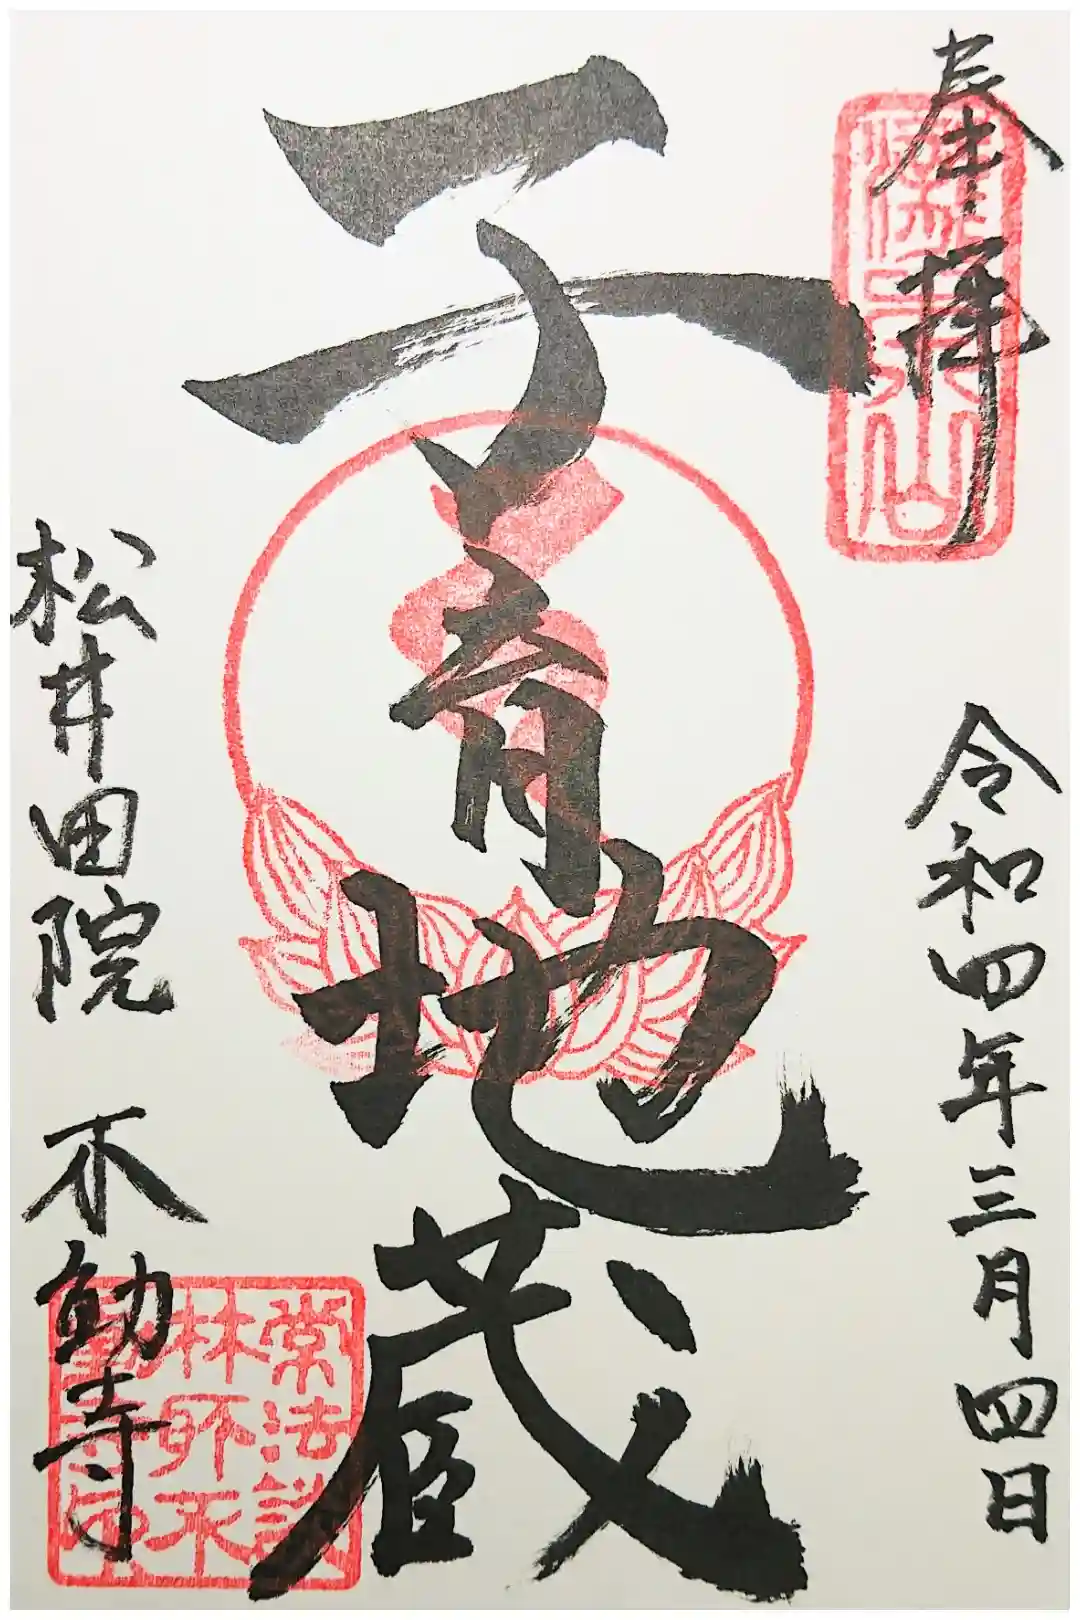 奉拝
令和四年三月四日
子育地蔵
松井田院 不動寺
常法談
林所不
動寺印